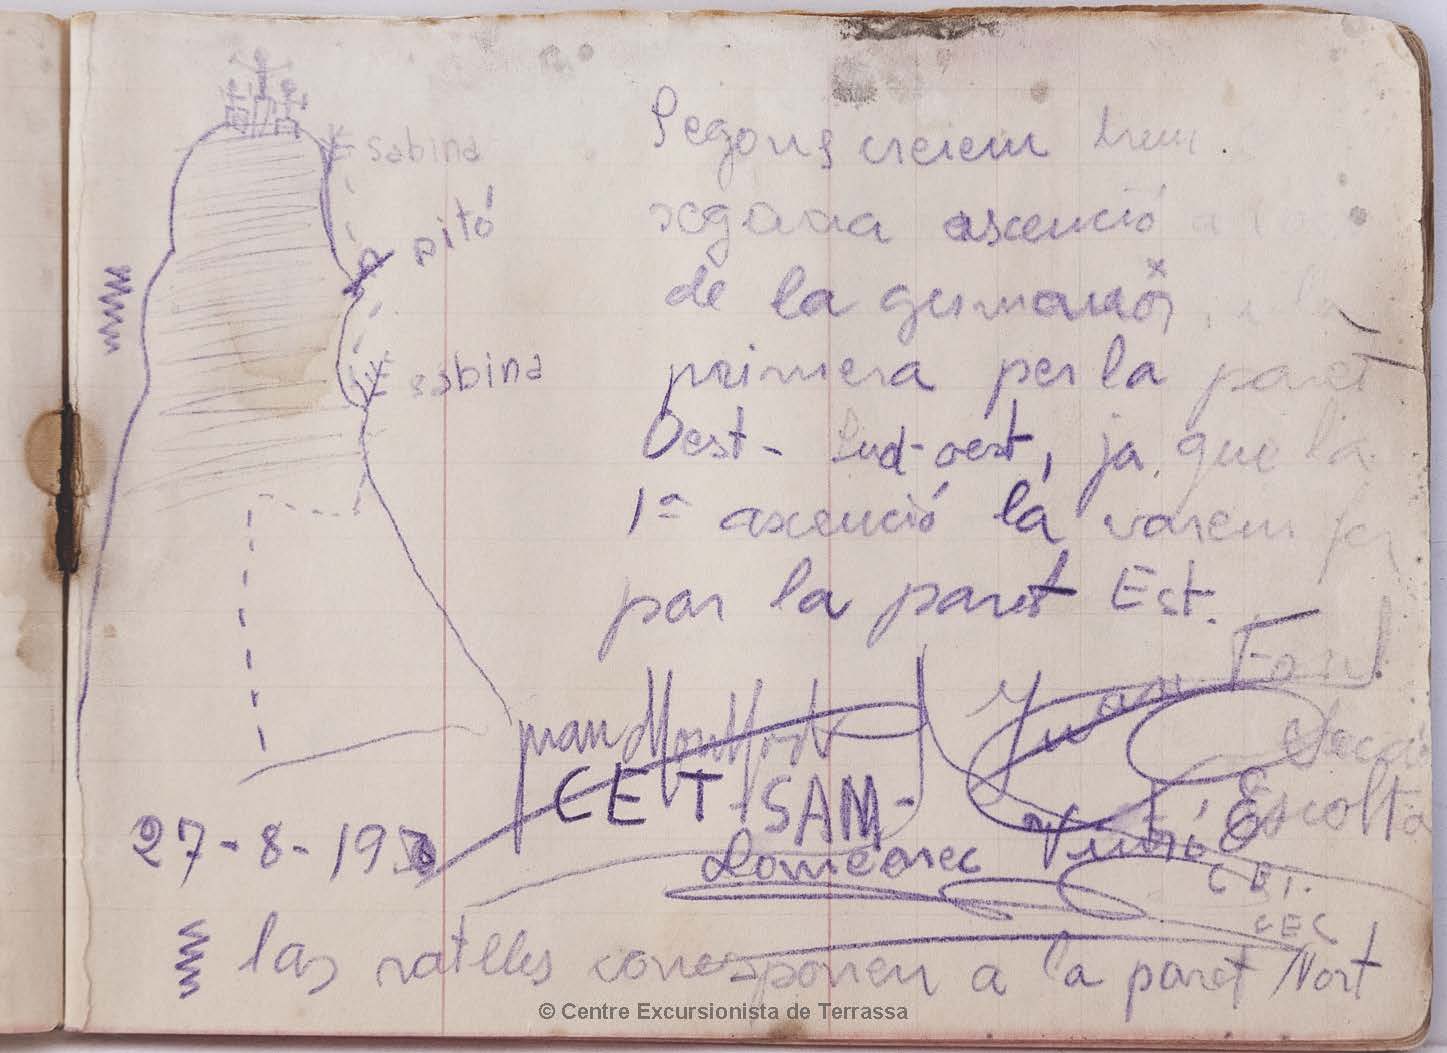 sabina
pitó
sabina
Segons creiem
segona ascenció a la
de la
primera per la paret
Oest - Sud-oest, ja que la
1ª ascenció la varem fer
par la paret Est.
Juan Montfort
Juan Font
C E T - SAM -
Secció
Escolta
27-8-195
C E T.
CEC
las ratlles corresponen a la paret Nort
© Centre Excursionista de Terrassa